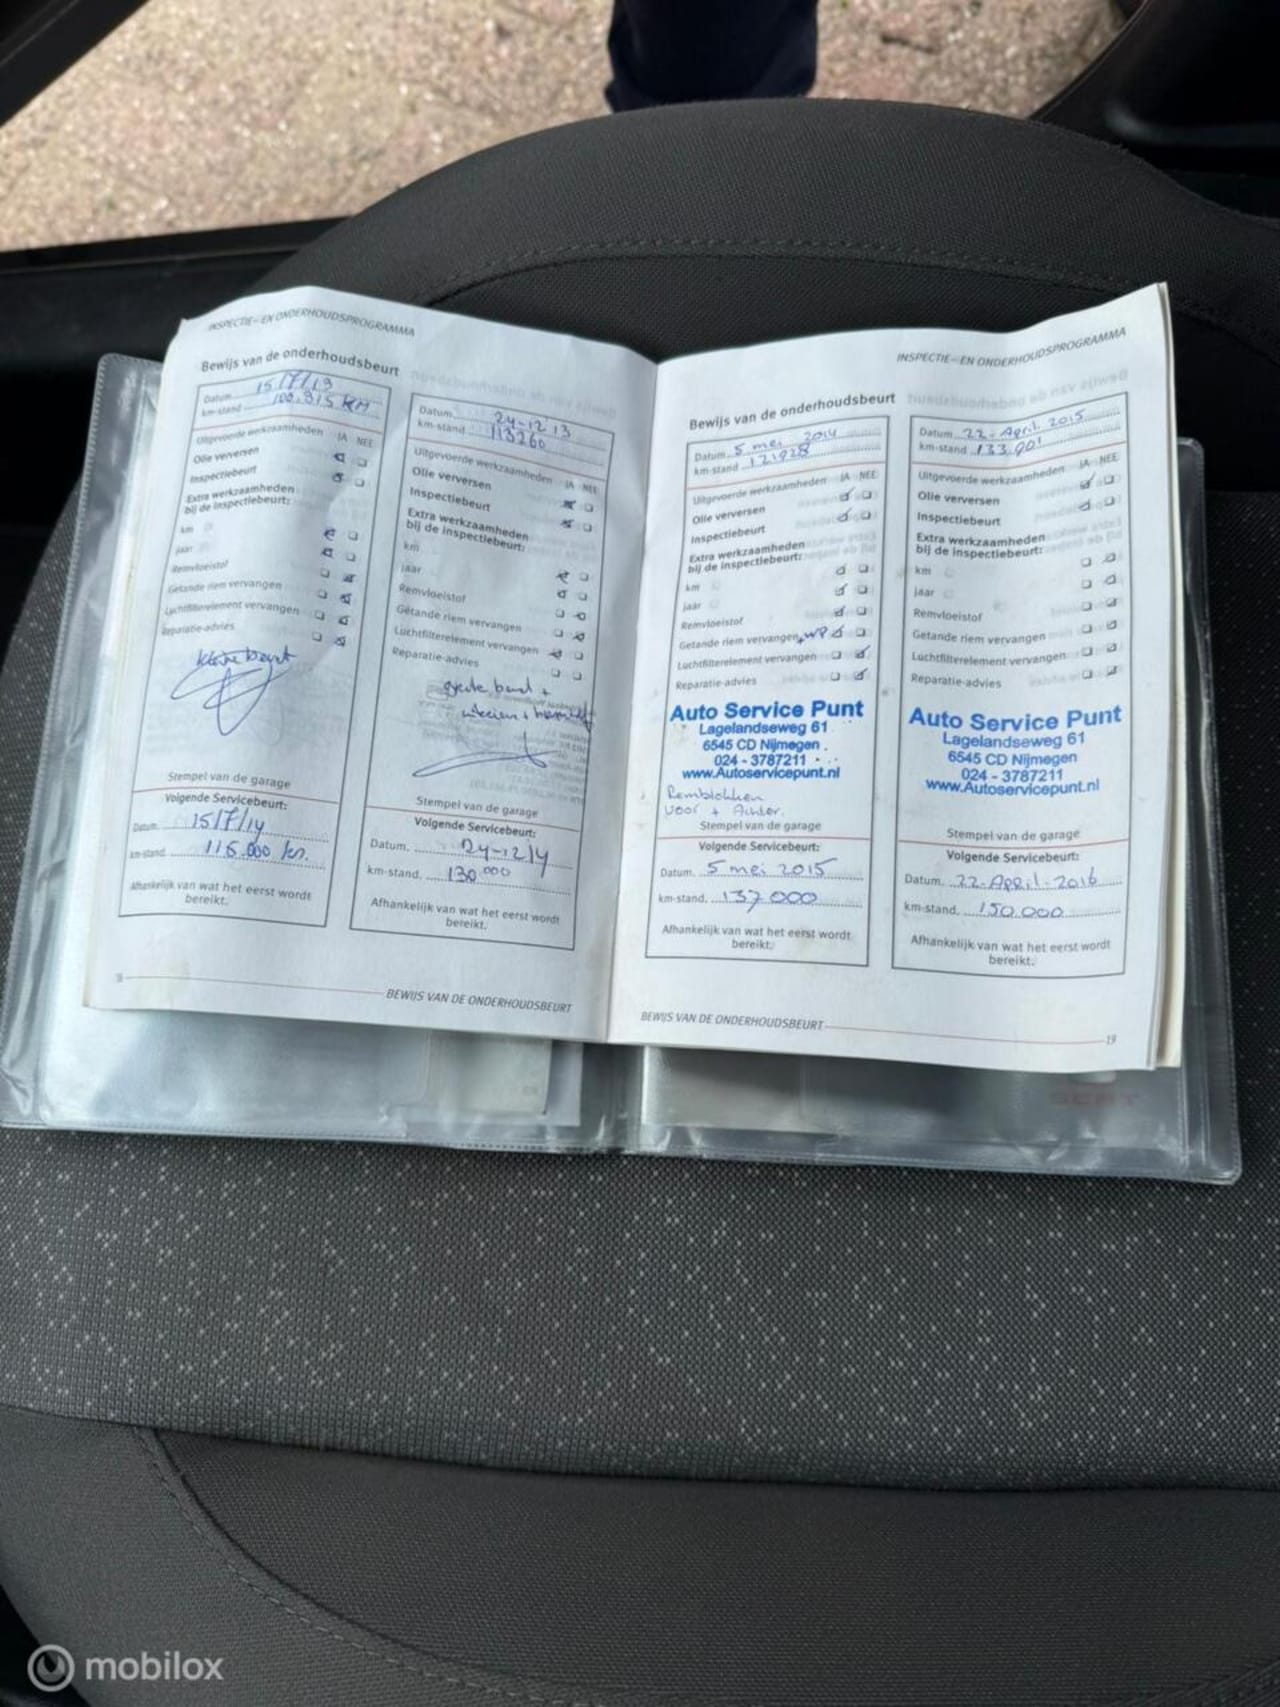 INSPECTIE- EN ONDERHOUDSPROGRAMMA
Bewijs van de onderhoudsbeurt
Datum 15/7/13
km-stand 100.815 KM
Uitgevoerde werkzaamheden JA NEE
Olie verversen
Inspectiebeurt
Extra werkzaamheden
bij de inspectiebeurt:
km
jaar
Remvloeistof
Getande riem vervangen
Luchtfilterelement vervangen
Reparatie-advies
kleine beurt
Stempel van de garage
Volgende Servicebeurt:
Datum. 15/7/14
km-stand. 115.000 km.
Afhankelijk van wat het eerst wordt
bereikt.
Datum. 24-12'13
km-stand 113260
Uitgevoerde werkzaamheden JA NEE
Olie verversen
Inspectiebeurt
Extra werkzaamheden
bij de inspectiebeurt:
km
jaar
Remvloeistof
Getande riem vervangen
Luchtfilterelement vervangen
Reparatie-advies
Stempel van de garage
Volgende Servicebeurt:
Datum. 24-12/14
km-stand. 130 000
Afhankelijk van wat het eerst wordt
bereikt.
18
BEWIJS VAN DE ONDERHOUDSBEURT
INSPECTIE- EN ONDERHOUDSPROGRAMMA
Bewijs van de onderhoudsbeurt
Datum 5 mei 2014
km-stand 121928
Uitgevoerde werkzaamheden JA NEE
Olie verversen
Inspectiebeurt
Extra werkzaamheden
bij de inspectiebeurt:
km
jaar
Remvloeistof
Getande riem vervangen +WP
Luchtfilterelement vervangen
Reparatie-advies
Auto Service Punt
Lagelandseweg 61
6545 CD Nijmegen
024 - 3787211
www.Autoservicepunt.nl
Remblokken
voor + Achter.
Stempel van de garage
Volgende Servicebeurt:
Datum. 5 mei 2015
km-stand. 137 000
Afhankelijk van wat het eerst wordt
bereikt.
Datum 22-April 2015
km-stand 133.901
Uitgevoerde werkzaamheden JA NEE
Olie verversen
Inspectiebeurt
Extra werkzaamheden
bij de inspectiebeurt:
km
jaar
Remvloeistof
Getande riem vervangen
Luchtfilterelement vervangen
Reparatie-advies
Auto Service Punt
Lagelandseweg 61
6545 CD Nijmegen
024 - 3787211
www.Autoservicepunt.nl
Stempel van de garage
Volgende Servicebeurt:
Datum. 22-April-2016
km-stand. 150.000
Afhankelijk van wat het eerst wordt
bereikt.
BEWIJS VAN DE ONDERHOUDSBEURT
19
SEAT
mobilox